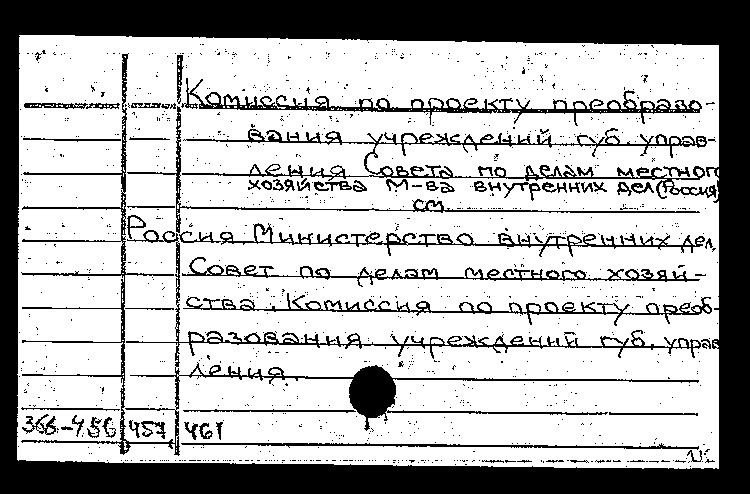 Комиссия по проекту преобразо-
вания учреждений губ. управ-
ления Совета по делам местного
хозяйства М-ва внутренних дел (Россия)
см.
Россия. Министерство внутренних дел.
Совет по делам местного хозяй-
ства. Комиссия по проекту преоб-
разования учреждений губ. управ
ления.
366-456 457 461